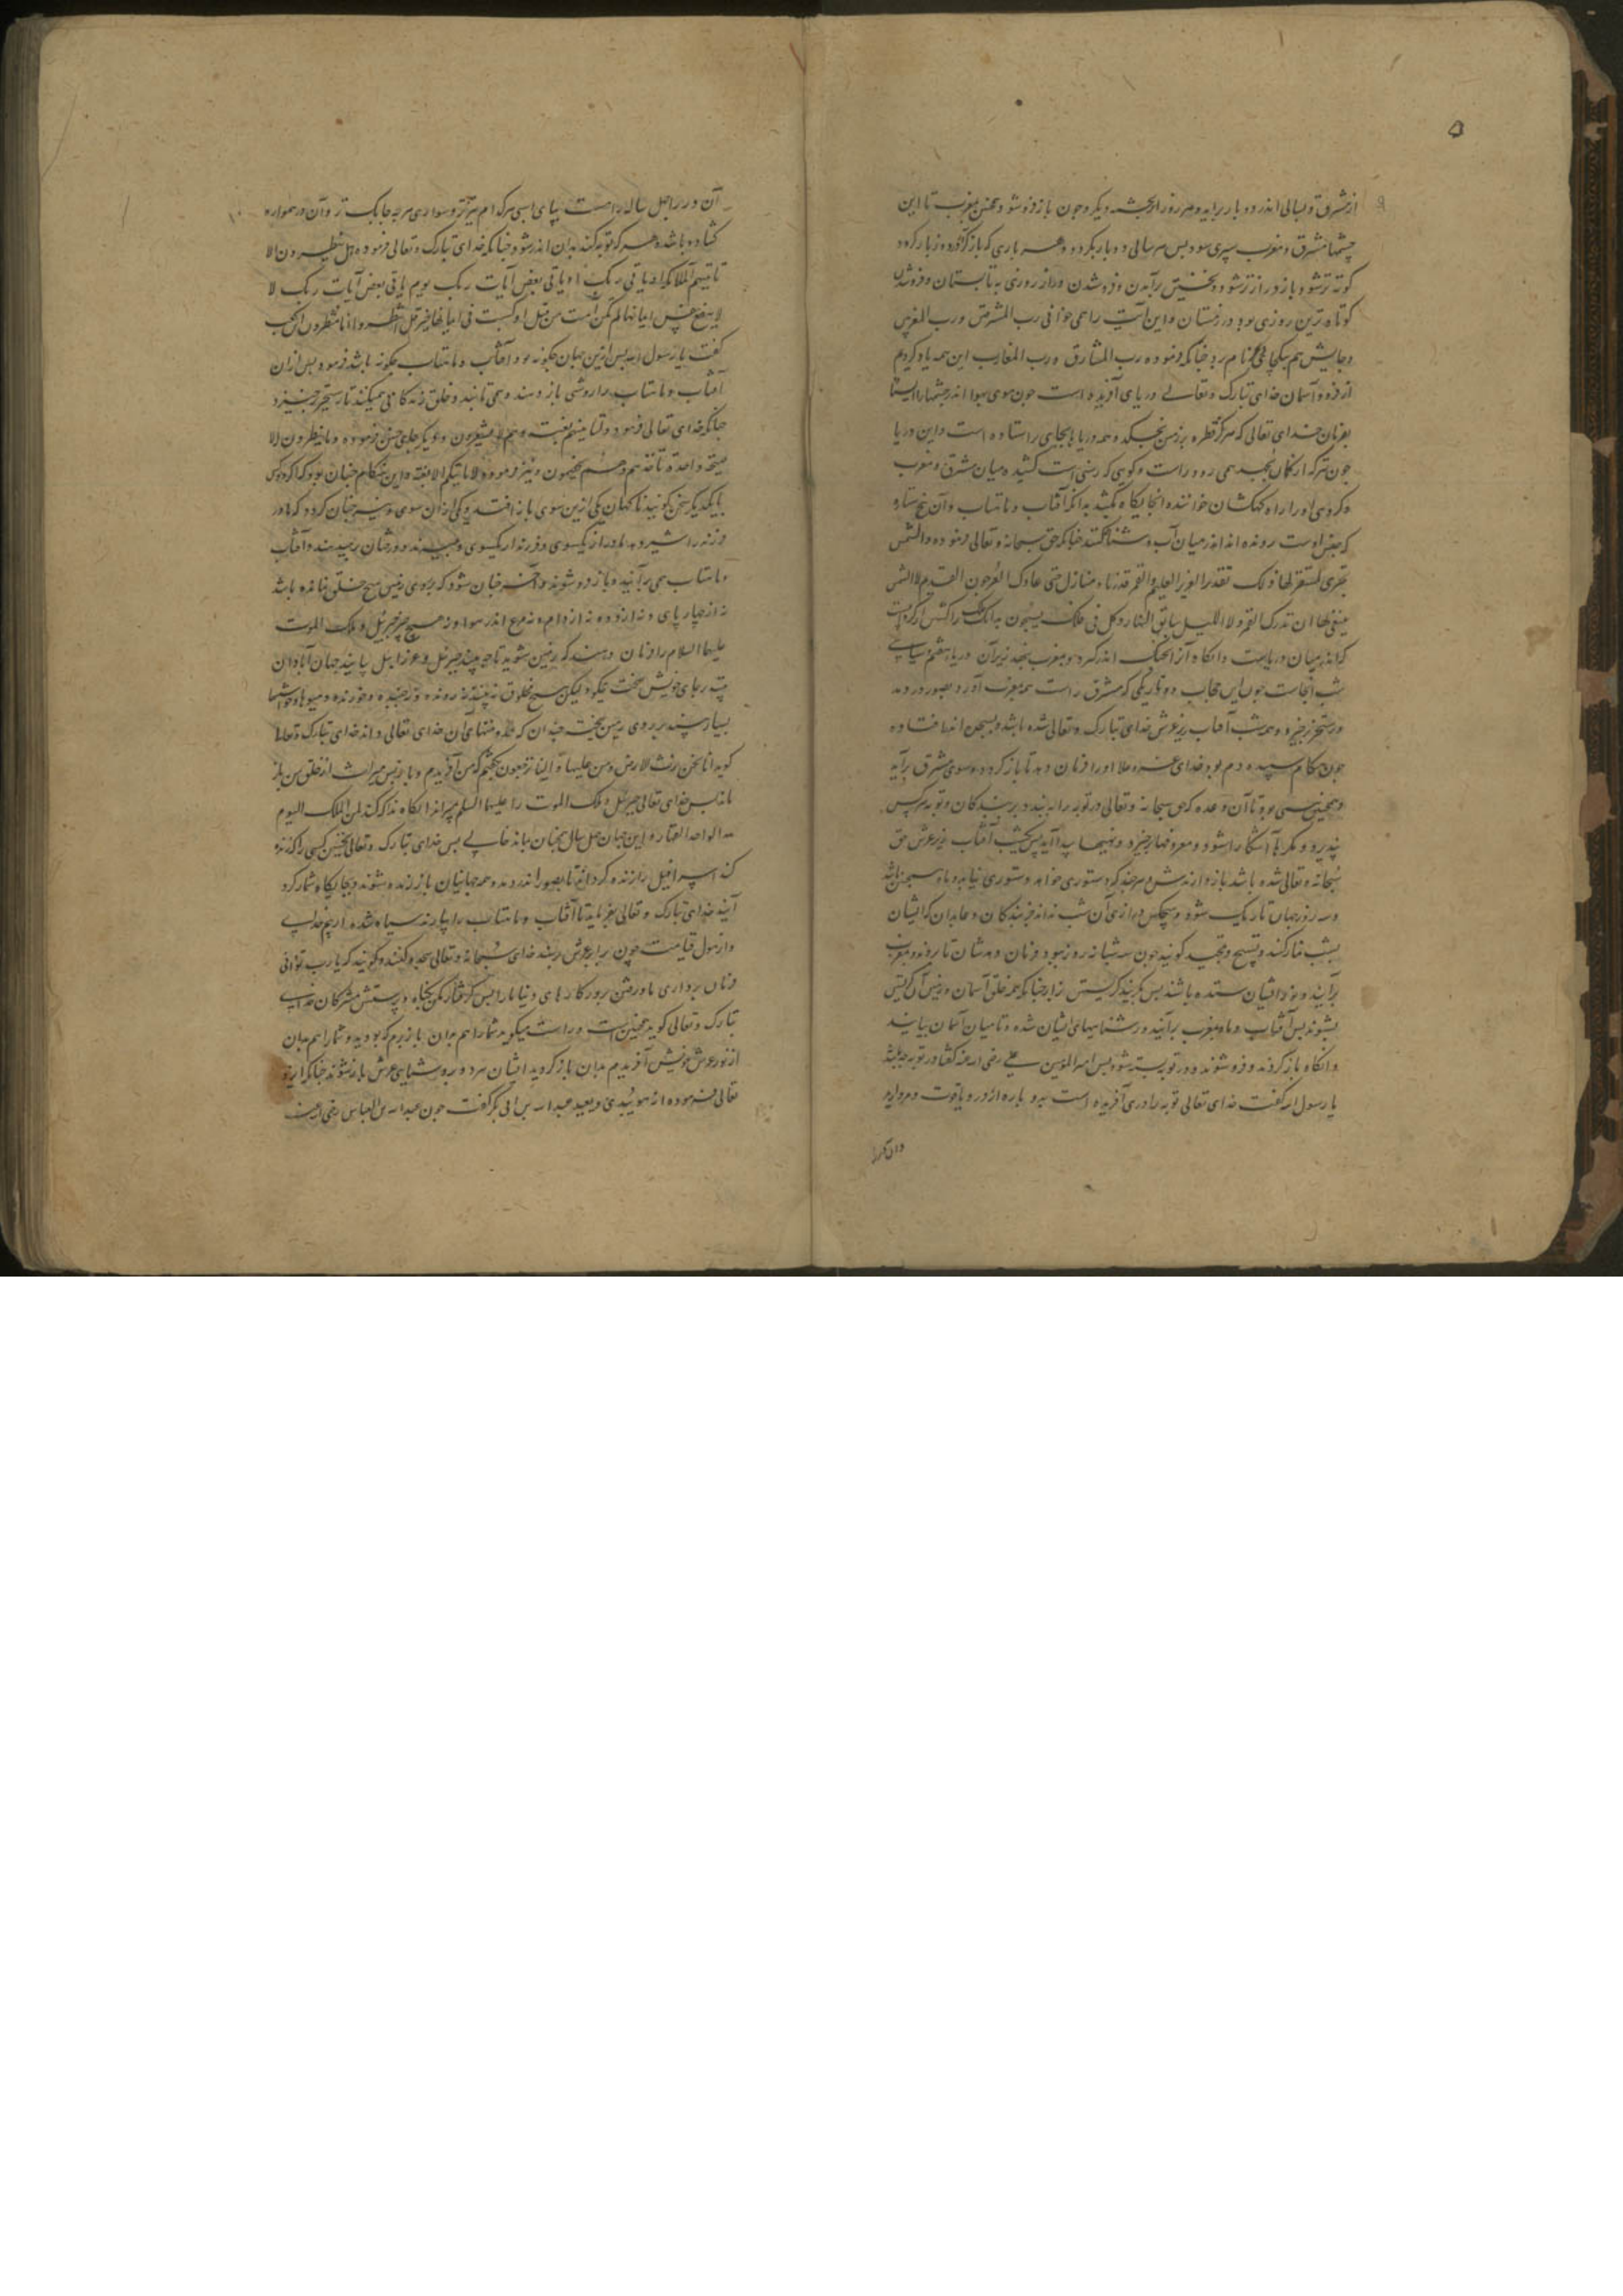 از مشرق و لیالی اندر دو بار براید و هر روز از چشمه دیگر و چون باز فرو شود همچنین بمغرب تا این
چشمها مشرق و مغرب سپری شود پس هر سالی دو بار بگردد و هر باری که باز گردد روز بار گردد
کوته تر شود و باز دراز تر شود و نخستین برآمدن و فرو شدن دراز روزی به تابستان و فرو شدن
کوتاه ترین روزی بود در زمستان و این آیت را همی خوانی رب المشرقین و رب المغربین
و جایش هم بیکجای نام برد چنانکه فرموده رب المشارق و رب المغارب این همه یاد کردیم
از فرود آسمان خدای تبارک و تعالی دریای آفریده است چون موی هوا اندر چشمها ایستاده
بفرمان خدای تعالی که هرگز قطره بر زمین نچکد و همه دریاها بجای راستاده است و این دریا
چون تیر که از کمان بجهد همی رود راست و گویی که رسنی است کشیده میان مشرق و مغرب
و گروهی او را راه کهکشان خوانند و آنجایگاه بدانکه آفتاب و ماهتاب و آن پنج ستاره
که بعضی اوست رونده اند اندر میان آب شناه کنند چنانکه حق سبحانه و تعالی فرموده والشمس
تجری لمستقر لها ذلک تقدیر العزیز العلیم والقمر قدرناه منازل حتی عاد کالعرجون القدیم لا الشمس
ینبغی لها ان تدرک القمر ولا اللیل سابق النهار وکل فی فلک یسبحون بدانک فلک
که اندر میان دریاست و آنگاه از فلک اندر گیرد و بمغرب زیر آن دریا هفتم سیاهی
شب آنجاست چون این حجاب دو تاریکی که مشرق راست همه بمغرب آورد بصور در دمد
و رستخیز خیزد و همه شب آفتاب زیر عرش خدای تبارک و تعالی شده باشد و بسجود اندر افتاده
چون هنگام سپیده دم بود خدای عز و علا او را فرمان دهد تا باز گردد و سوی مشرق برآید
و همچنین همی بود تا آن وعده که حق سبحانه و تعالی در توبه را ببندد بر بندگان و توبه هر کس
نپذیرد و منکرها آشکارا شود و معروفها برخیزد و پدید آید پس یکشب آفتاب زیر عرش حق
سبحانه و تعالی شده باشد باز دارندش و هر چند که دستوری خواهد دستوری نیابد و ماه همچنین باشد
و سه روز جهان تاریک شود و هیچکس درازی آن شب نداند جز بندگان و عابدان که ایشان
بشب نماز کنند و تسبیح و تهجد کویند چون سه شبانه روز بود فرمان دهدشان تا بروند و بمغرب
برآیند و نور از ایشان ستده باشند پس بگریند گریستن زار چنانکه همه خلق آسمان و زمین آن گریستن
بشنوند پس آفتاب و ماه بمغرب برآیند و روشناییهای ایشان شده و تا میان آسمان بیایند
و آنگاه باز گردند و فرو شوند و در توبه بسته شود پس امیر المؤمنین علی رضی الله عنه گفتا در توبه چه باشد
یا رسول الله گفت خدای تعالی توبه را دری آفریده است به دو پاره از در و یاقوت و مروارید
و آن در را چهل ساله راهست بپای اسبی هر کدام تیزتر و سواری هر چه چابک تر و آن در همواره
گشاده باشد و هر که توبه کند بدان اندر شود چنانکه خدای تبارک و تعالی فرموده هل ینظرون الا
تاتیهم الملائکة او یاتی ربک او یاتی بعض آیات ربک یوم یاتی بعض آیات ربک لا
لا ینفع نفس ایمانها لم تکن آمنت من قبل او کسبت فی ایمانها خیرا قل انتظروا انا منتظرون
گفت یا رسول الله پس ازین جهان چگونه بود و آفتاب و ماهتاب چگونه باشد فرمود پس از آن
آفتاب و ماهتاب را روشنی باز دهند و همی تابند و خلق زندگانی همیکنند تا رستخیز خیزد
چنانکه خدای تعالی فرمود و لتاتینهم بغتة و هم لا یشعرون و دیگر جای فرموده ما ینظرون الا
صیحة واحدة تاخذهم و هم یخصمون و نیز فرموده لا تاتیکم الا بغتة و این هنگام چنان بود که
با یکدیگر سخن گویند ناگهان یکی ازین سوی باز افتد و یکی از آن سوی و نیز چنان گردد که مادر
فرزند را شیر دهد مادر از یکسوی و فرزند از یکسوی و درختان و آفتاب
و ماهتاب همی برآیند و باز فرو شوند و آخر چنان شود که بر روی زمین هیچ خلق نمانده باشد
نه از چهار پای و نه از دده نه از دام و نه مرغ اندر هوا و نه هیچ چیز جبرئیل و ملک الموت
علیهما السلام را فرمان دهند که بزمین شوید تا چه بینید جبرئیل و عزرائیل بیایند جهان آبادان
بینند بجای خویش سخت نیکو و لیکن هیچ مخلوق نبینند نه رونده و نه جنبده و خورنده و میوها و خواستها
بسیار بینند بر روی زمین ریخته چندان که منتهای آن خدای تعالی داند خدای تبارک و تعالی
گوید انا نحن نرث الارض و من علیها و الینا یرجعون من آفریدم و باز پس میراث از خلق من باز
ماند پس خدای تعالی جبرئیل و ملک الموت را علیهما السلم بمیراند آنگاه ندا کند لمن الملک الیوم
لله الواحد القهار و این جهان چهل سال همچنان بماند خالی پس خدای تبارک و تعالی نخستین کسی را که زنده
کند اسرافیل را زنده گرداند تا بصور اندر دمد و همه جهانیان باز زنده شوند و بجایگاه شمار گرد
آیند خدای تبارک و تعالی بفرماید تا آفتاب و ماهتاب را بیارند سیاه شده از بیم خدای
و از هول قیامت چون برابر عرش رسند خدای سبحانه و تعالی سجده کنند و گویند که یا رب تو دانی
فرمان برداری ما و رفتن بروزگارهای دنیا ما را پس گرفتار مکن بگناه و پرستش مشرکان خدای
تبارک و تعالی گوید همچنین است و راست میگوید شما را هم بدان باز برم که بودید و شما را هم بدان
از نور عرش خویش آفریدم بدان باز گردید ایشان هر دو بروشنای عرش باز شوند چنانکه ایزد
تعالی فرموده انه هو یبدئ و یعید عبدالله بن ابی بکر گفت چون عبدالله بن العباس رضی الله عنه